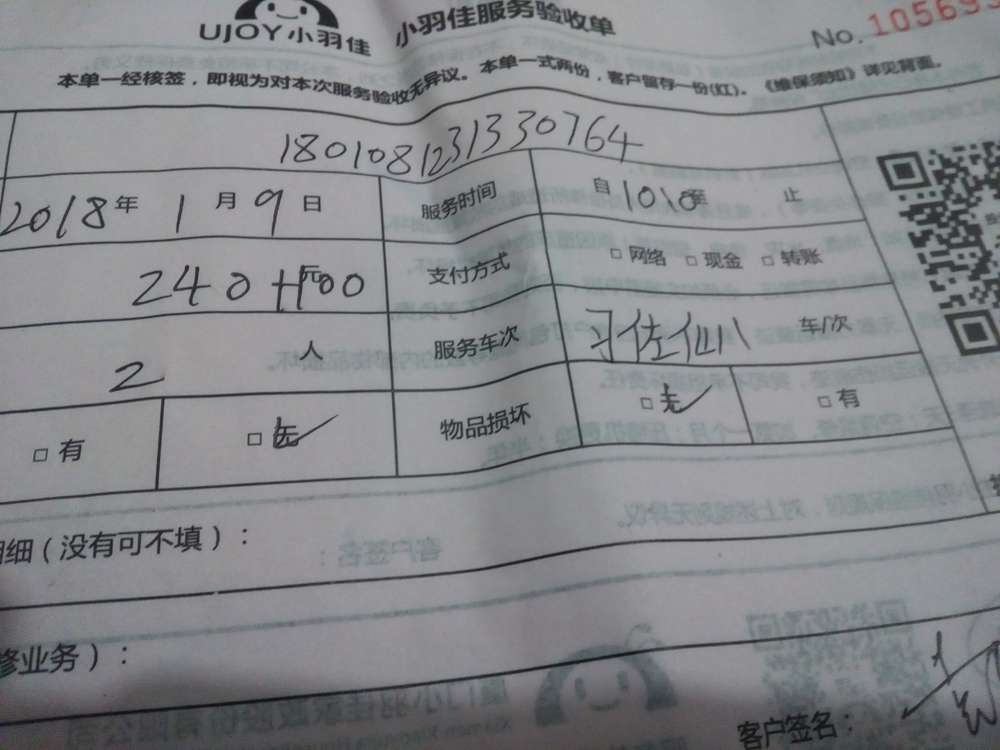 UJOY小羽佳 小羽佳服务验收单 No. 105695
本单一经核签，即视为对本次服务验收无异议。本单一式两份，客户留存一份(红)。《维保须知》详见背面。
180108123133076​4
2018年 1月 9日 服务时间 自 1010 至 止
240+100 元 支付方式 □ 网络 □ 现金 □ 转账
2 人 服务车次 车/次
□ 有 □ 无 ✓ 物品损坏 □ 无 ✓ □ 有
明细（没有可不填）：
修业务）：
客户签名：